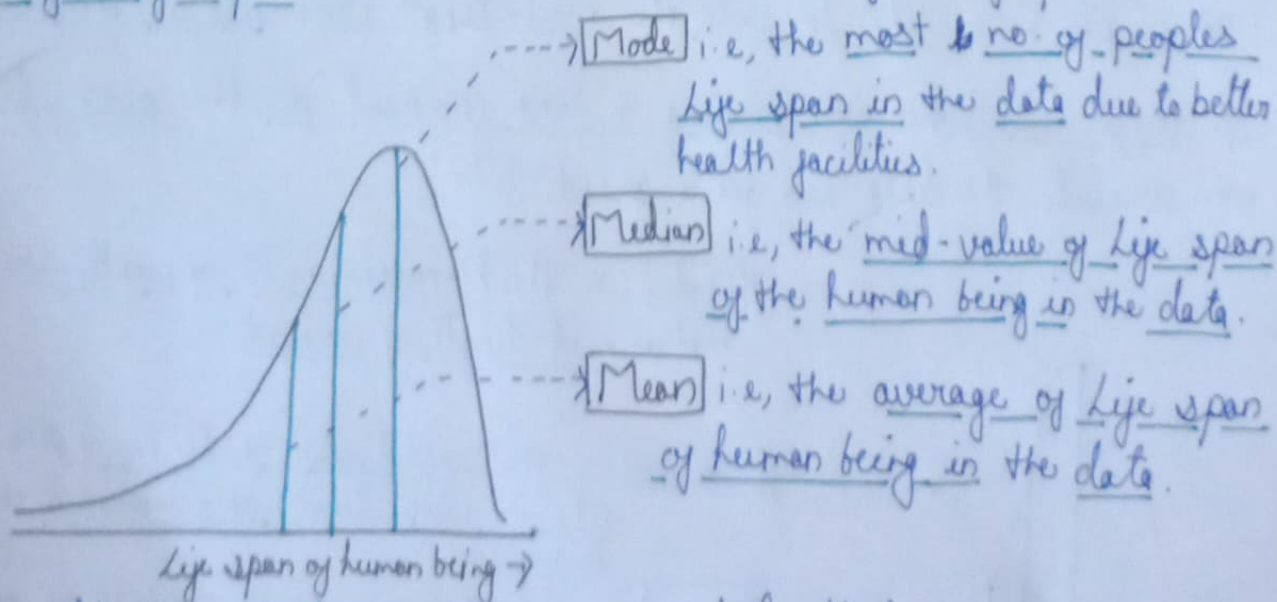 Mode i.e, the most no. of peoples
Life span in the data due to better
health facilities.
Median i.e, the mid-value of Life span
of the human being in the data.
Mean i.e, the average of Life span
of human being in the data.
Life span of human being →